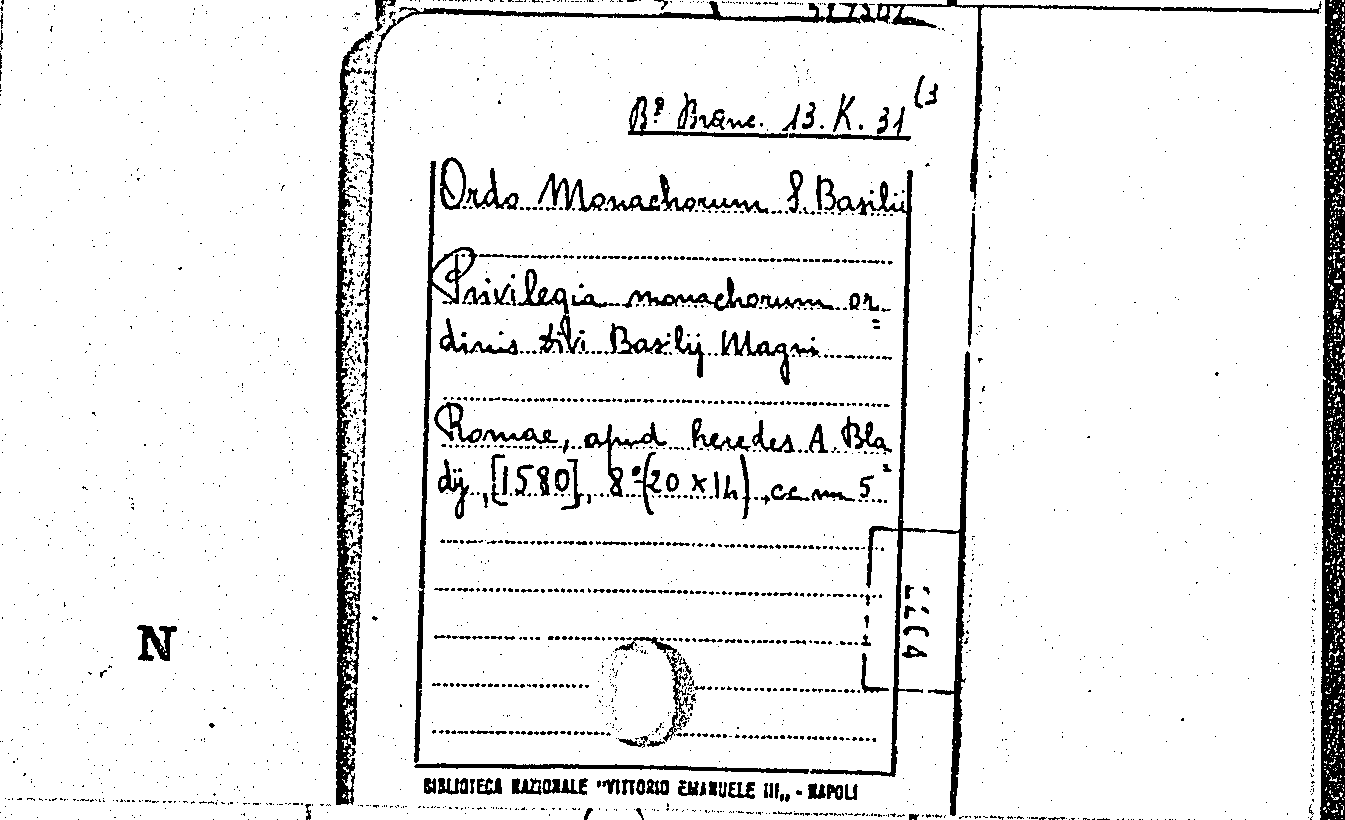 Bª Branc. 13. K. 31 (3
Ordo Monachorum S. Basilii
Privilegia monachorum or=
dinis divi Basilij Magni
Romae, apud heredes A. Bla=
dij, [1580], 8° (20 x 14), cc nn 5
N
BIBLIOTECA NAZIONALE "VITTORIO EMANUELE III„ - NAPOLI